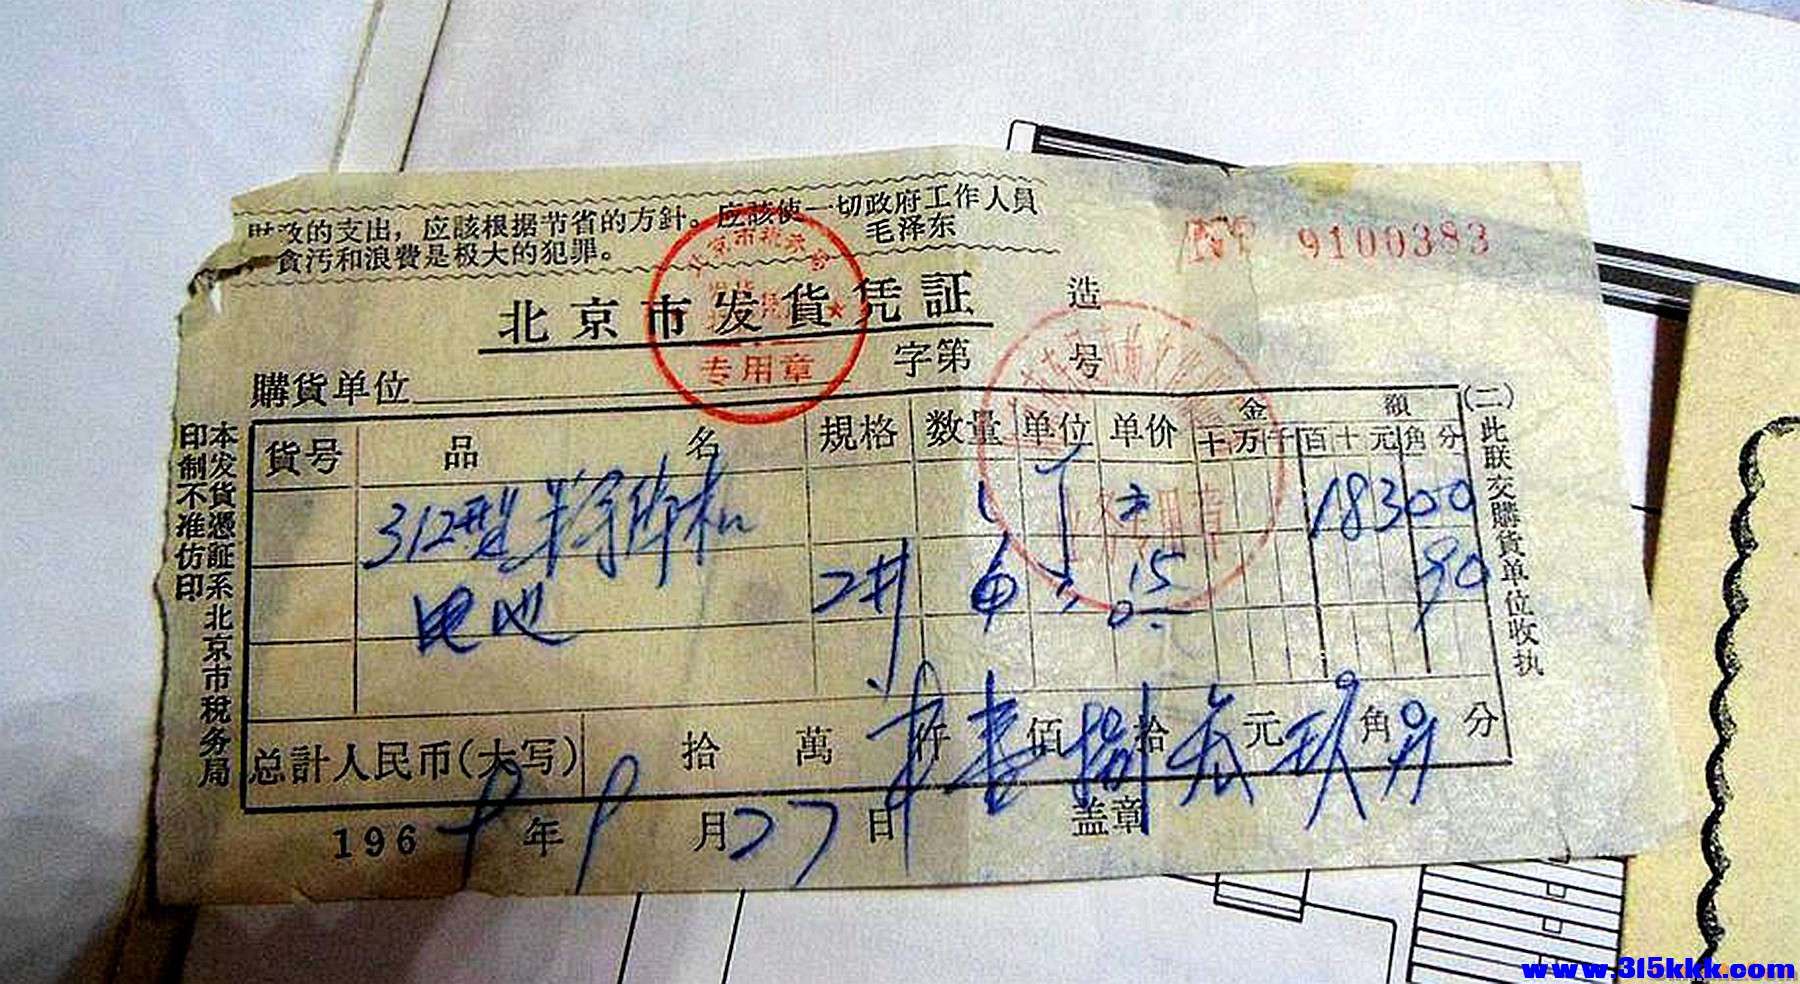 财政的支出，应該根据节省的方針。应該使一切政府工作人員
貪污和浪費是极大的犯罪。
毛泽东
№ 9100383
北京市发貨凭証
造
字第 号
購貨单位
专用章
貨号 品名 規格 数量 单位 单价 金額
十万千百十元角分
312型 18300
电池 2井 6 0.15 90
总計人民币(大写) 拾 萬 仟 壹 佰 捌 拾 元 玖 角 分
196 年 9 月 27 日 盖章
本发貨憑証系北京市稅务局
印制不准仿印
(二)此联交購貨单位收执
www.315kkk.com